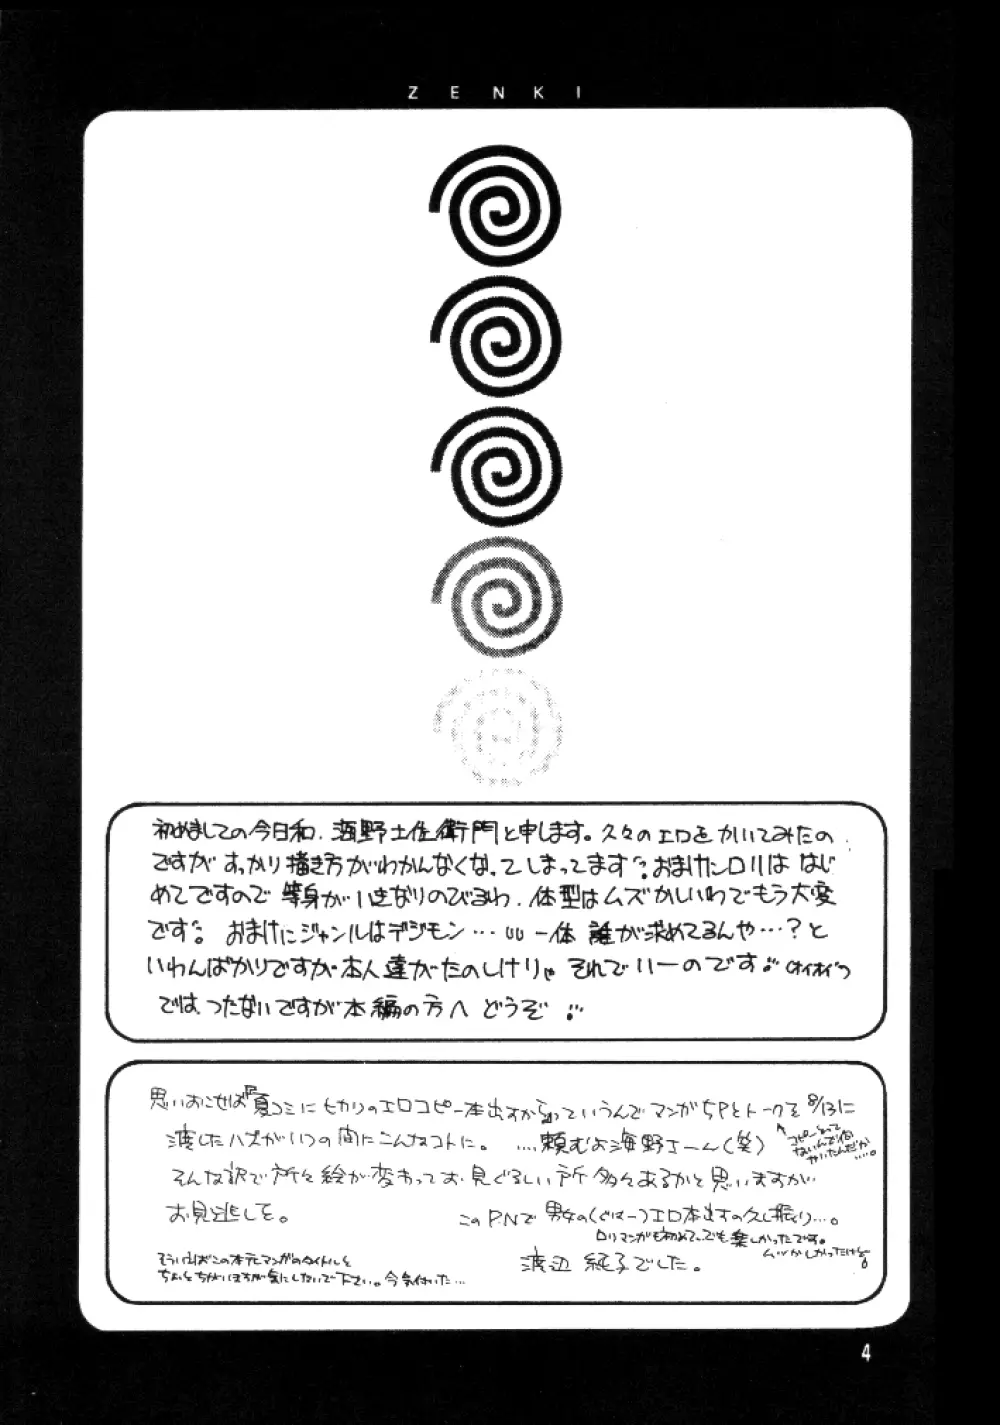 ZENKI
初めましての今日和、海野土佐衛門と申します。久々のエロをかいてみたの
ですが すっかり描き方がわかんなくなってしまってます おまけにロリは はじ
めてですので 等身がいきなりのびるわ、体型はムズかしいわでもう大変
です おまけにジャンルはデジモン… 一体 誰が求めてるんや…？と
いわんばかりですが本人達がたのしけりゃ それでいーのです (オイオイ)
では、つたないですが本編の方へ どうぞ
思いおこせば『夏コミにヒカリのエロコピー本出すから』っていうんで マンガ5PとトークをP 8/13に
渡したハズがいつの間にこんなコトに。 ….頼むよ海野さーん(笑)
そんな訳で所々 絵が変わってお見ぐるしい所 多々あるかと思いますが
お見逃しを。
このP.Nで 男女の(ぐはーっ)エロ本出すの久し振り…。
ロリマンガも初めて。でも楽しかったです。
ムツかしかったけど
渡辺 純子でした。
そういえばこの本 マンガのタイトルと
ちょっとちがいますが気にしないで下さい。今気付いた…
4